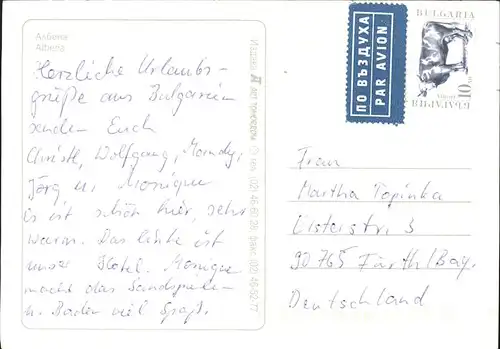 Албена
Albena
Herzliche Urlaubs-
grüße aus Bulgarien
senden Euch
Christl, Wolfgang, Mandy,
Jörg u. Monique
Es ist schön hier, sehr
warm. Das linke ist
unser Hotel. Monique
macht das Sandspielen
u. Baden viel Spaß.
ПО ВЪЗДУХА
PAR AVION
BULGARIA
10
БЪЛГАРИЯ
Frau
Martha Topinka
Ulsterstr. 3
90765 Fürth/Bay.
Deutschland